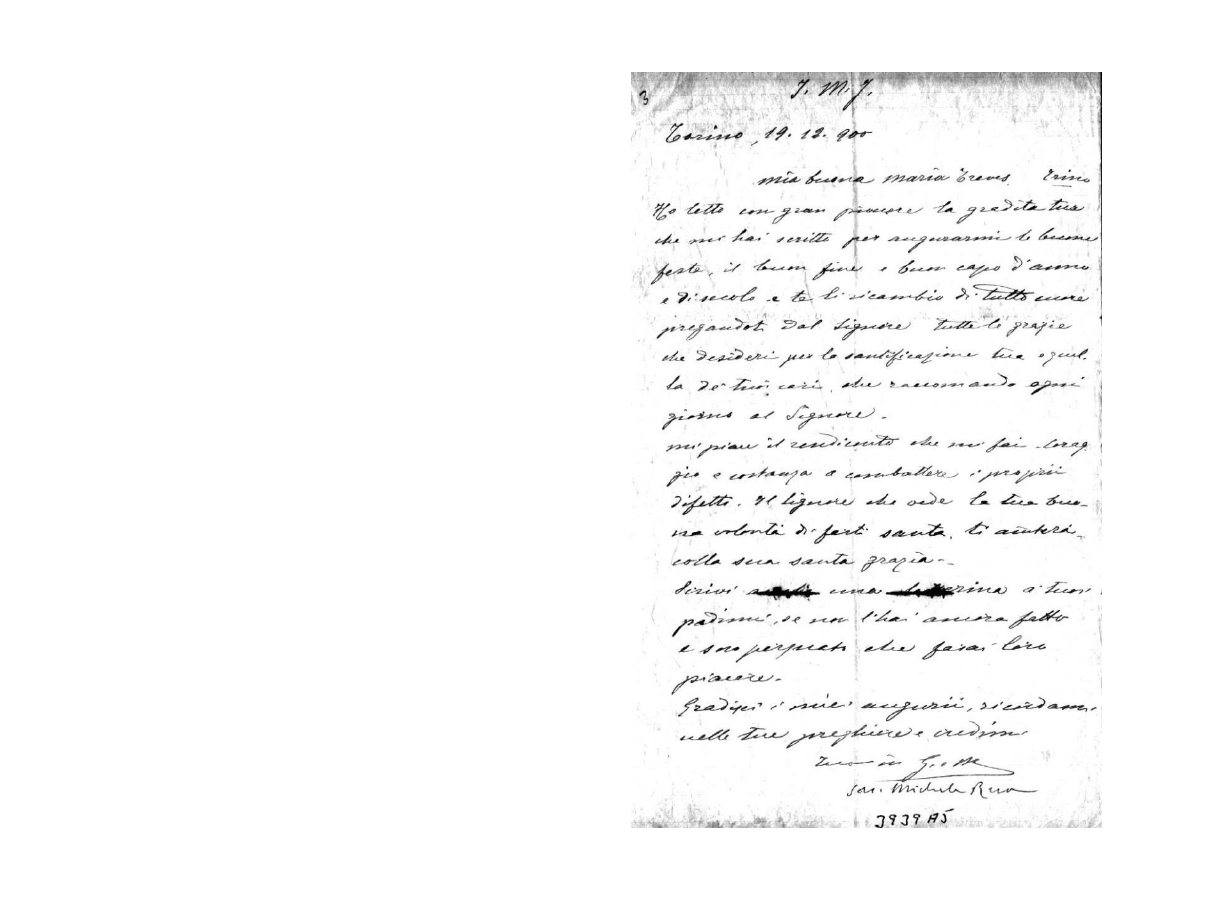 J. M. J.
3
Torino, 19. 12. 900
Mia buona Maria Treves Trino
Ho letto con gran piacere la gradita tua
che mi hai scritto per augurarmi le buone
feste, il buon fine e buon capo d'anno
e di secolo e te li ricambio di tutto cuore
pregandoti dal Signore tutte le grazie
che desideri per la santificazione tua e quel-
la de' tuoi cari, che raccomando ogni
giorno al Signore.
Mi piace il rendiconto che mi fai. Corag
gio e costanza a combattere i proprii
difetti. Il Signore che vede la tua buo-
na volontà di farti santa, ti aiuterà
colla sua santa grazia.
Scrivi una a tuoi
padrini, se non l'hai ancora fatto
e son persuaso che farai loro
piacere.
Gradisci i miei augurii, ricordami
nelle tue preghiere e credimi
Tuo in G. e M.
Sac. Michele Rua
3939 A5